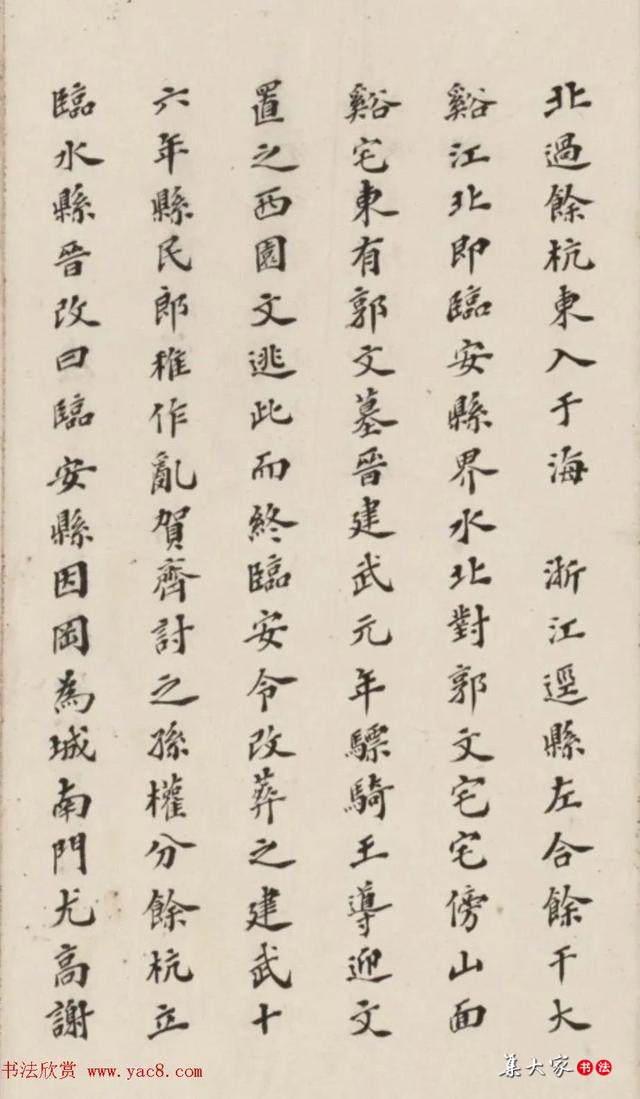 北過餘杭東入于海　浙江逕縣左合餘干大
谿江北即臨安縣界水北對郭文宅宅傍山面
谿宅東有郭文墓晉建武元年驃騎王導迎文
置之西園文逃此而終臨安令改葬之建武十
六年縣民郎稚作亂賀齊討之孫權分餘杭立
臨水縣晉改曰臨安縣因岡為城南門尤高謝
书法欣赏 www.yac8.com
集大家 书法